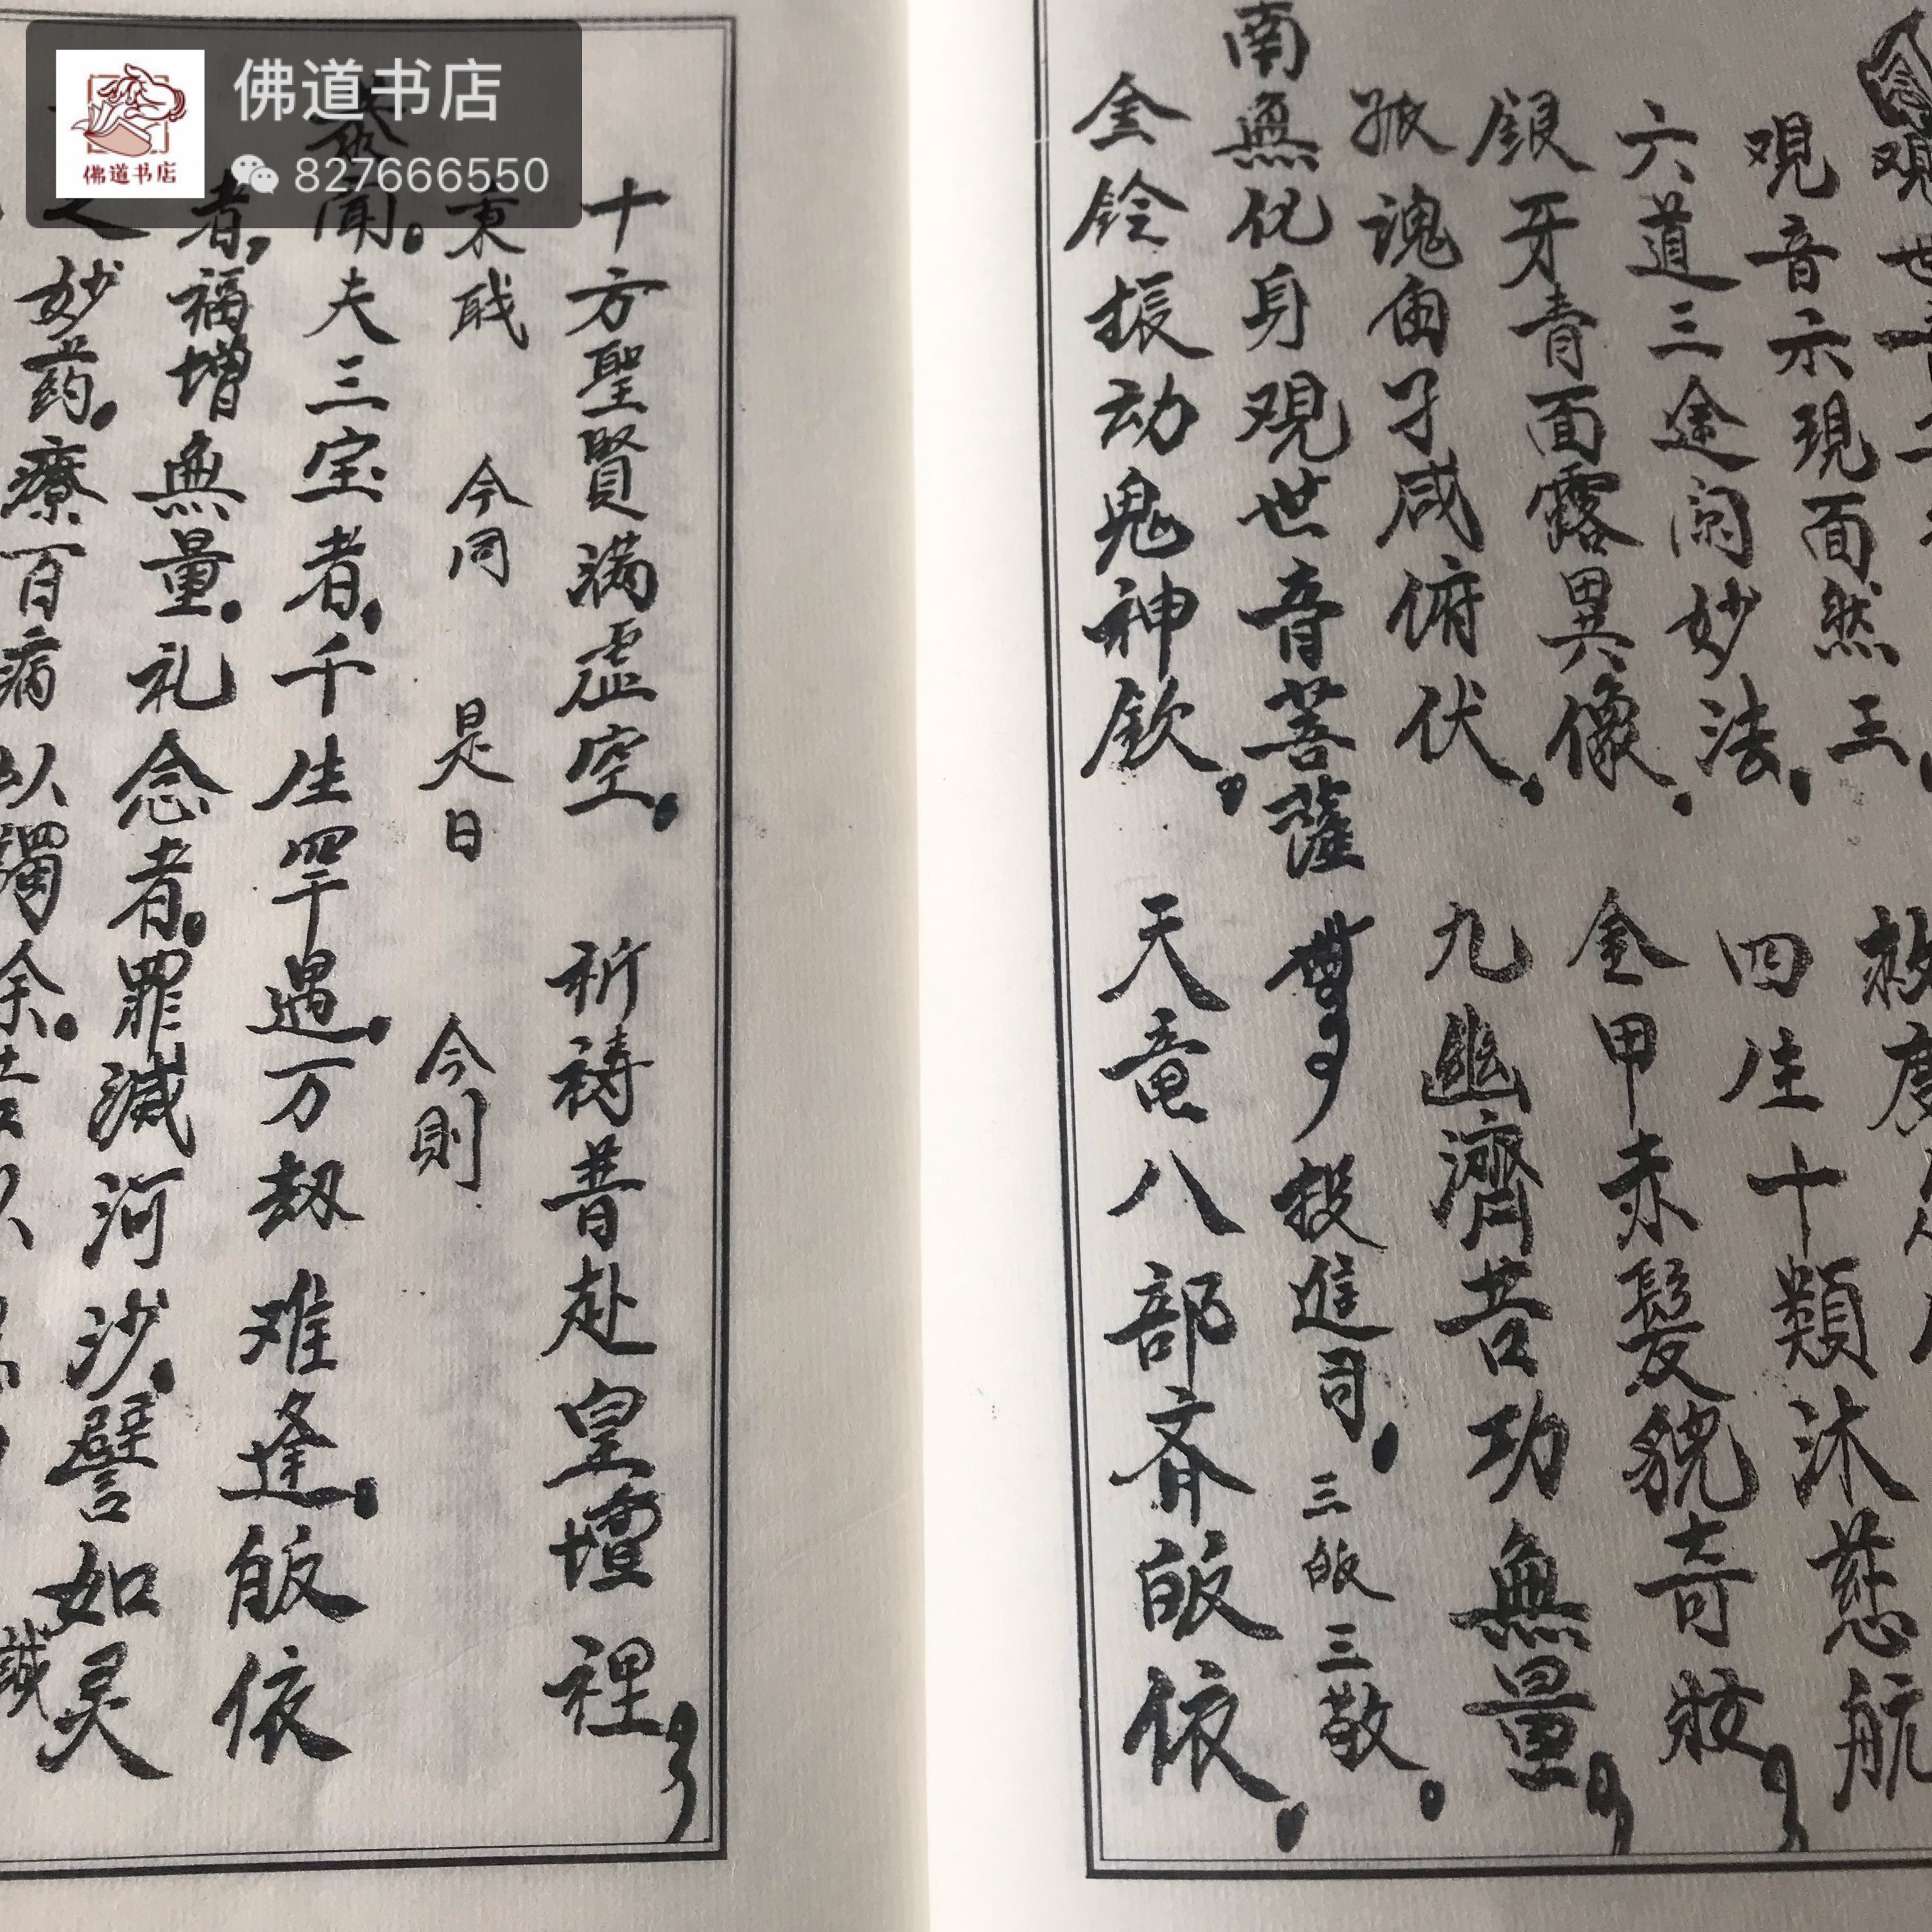 佛道书店
827666550
佛道书店
观世
救度
观音示現面然王
四生十類沐慈航
六道三途闻妙法
金甲赤髮貌奇妝
銀牙青面露異像
九幽濟苦功無量
孤魂由子咸俯伏
南無化身观世音菩薩
投進司
三皈三敬
金铃振动鬼神欽
天竜八部齐皈依
十方聖賢满虚空
祈祷普赴皇壇裡
秉职 今同 是日 今則
恭闻夫三宝者千生罕遇万劫难逢皈依
者福增無量礼念者罪減河沙譬如灵
之妙药療百病以蠲余
誠